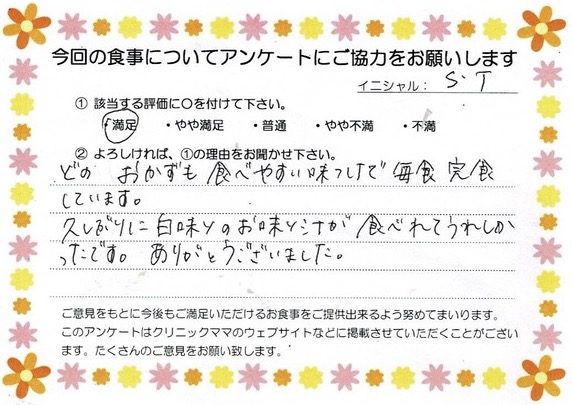 今回の食事についてアンケートにご協力をお願いします
イニシャル： S・T
① 該当する評価に○を付けて下さい。
・満足 ・やや満足 ・普通 ・やや不満 ・不満
② よろしければ、①の理由をお聞かせ下さい。
どの おかずも 食べやすい味つけで 毎食 完食
しています。
久しぶりに白味そのお味そ汁が 食べれてうれしか
ったです。 ありがとうございました。
ご意見をもとに今後もご満足いただけるお食事をご提供出来るよう努めてまいります。
このアンケートはクリニックママのウェブサイトなどに掲載させていただくことがござい
ます。たくさんのご意見をお願い致します。